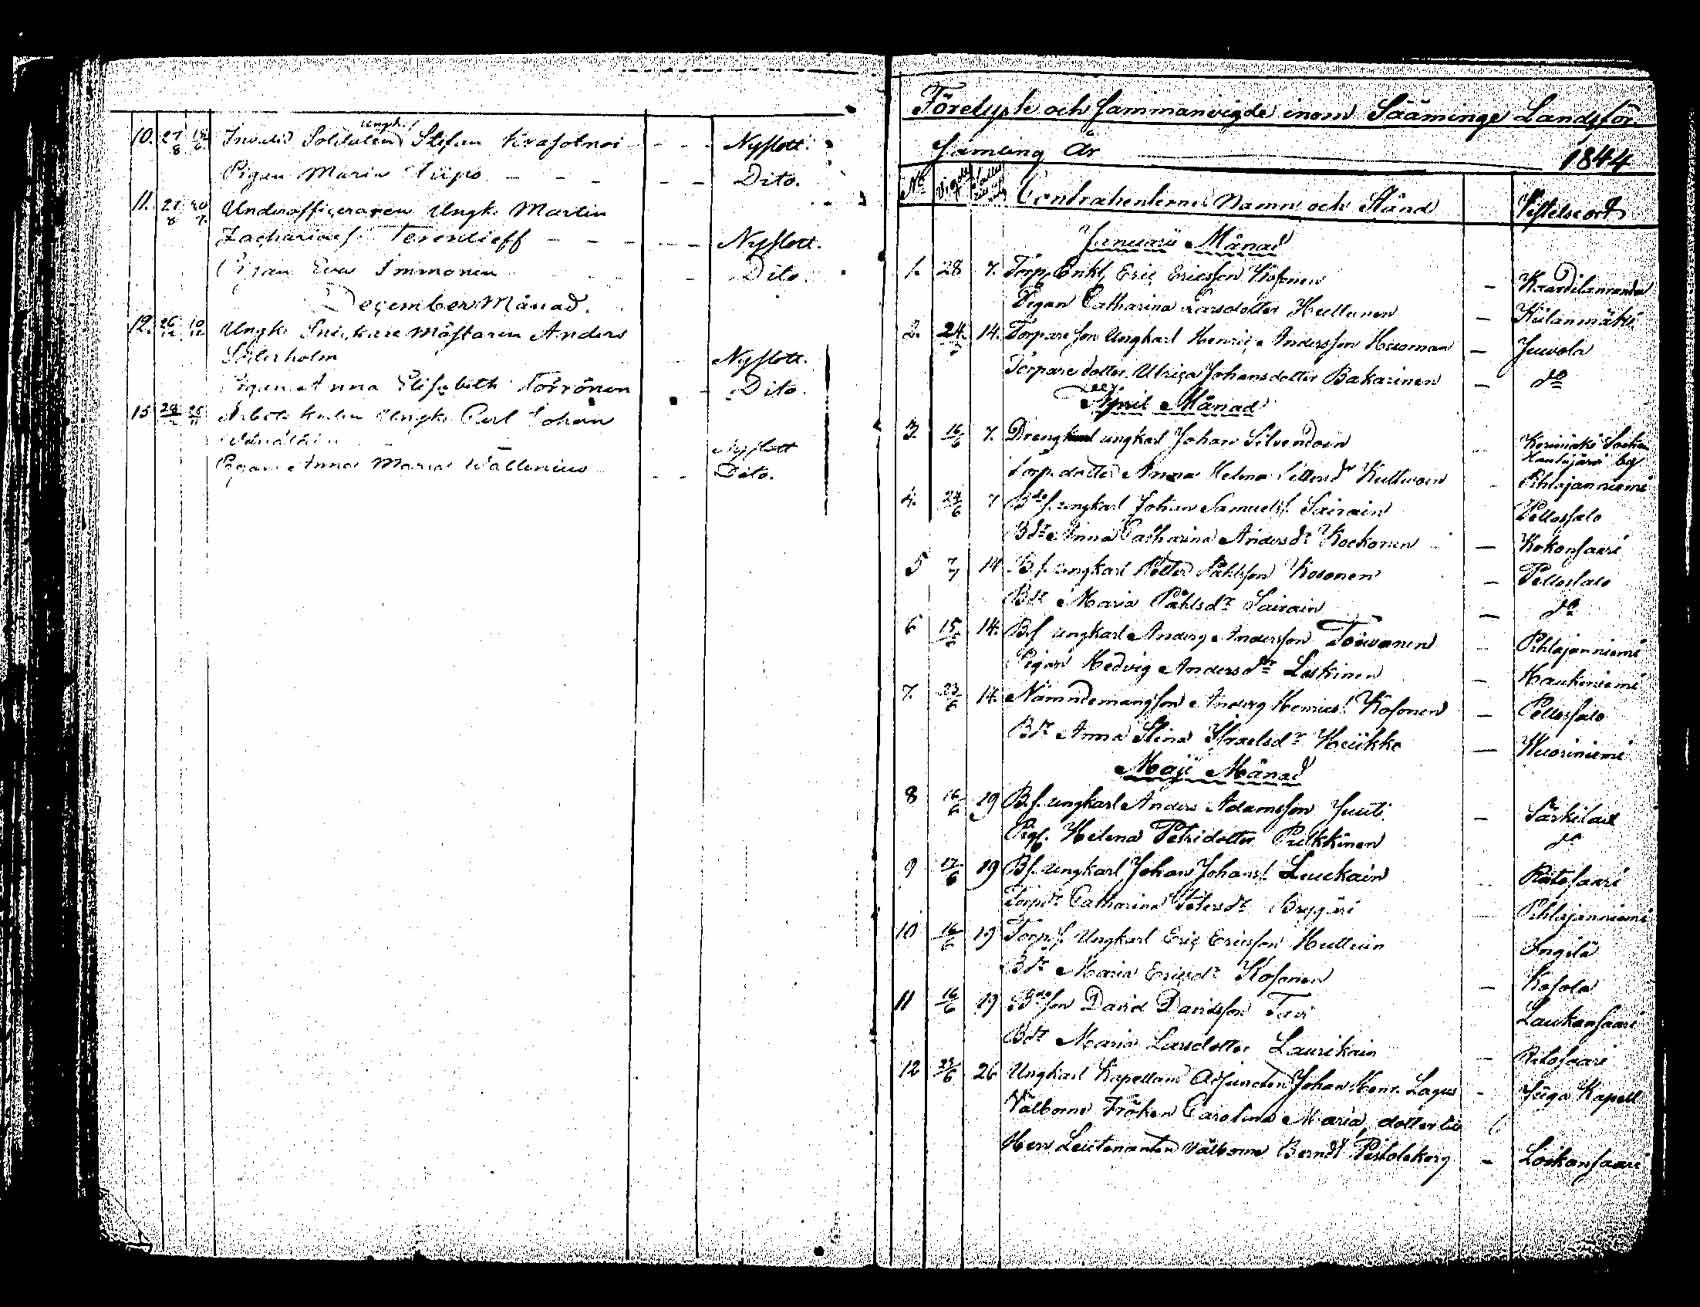 10. 27/8 Invalid Soldaten Ungk. Stefan Krasolnoi - - - Nyslott.
Pigan Maria Siipo - - - - - Dito.
11. 27/8 Underofficeraren Ungk. Martin
Zachariaes. Terentieff - - - - - Nyslott.
Pigan Eva Immonen - - - Dito
December Månad.
12. 26/12 Ungk. Snickare Mästaren Anders
Söderholm - Nyslott.
Pigan Anna Elisabeth Torrönen - Dito.
13 Arbets Karlen Ungk. Carl Johan
Nyslott
Pigan Anna Maria Wallenius - - Dito.
Förelyste och Sammanvigde inom Sääminge Landsför-
samling År 1844
No Contrahenternes Namn och Stånd Vistelseort
Januarii Månad
1. 28 7. Torp. Enkl. Eric Ericsson Kosonen - Kaartilanranda
Pigan Catharina Larsdotter Huttunen - Kiilanmäki
2. 24 14. Torpare son Ungkarl Henric Andersson Heisonan - Juvola
Torpare dotter Ulrica Johansdotter Bakarinen - do
April Månad
3. 16/6 7. Dreng ungkarl Johan Silvendoin Kerimäki Socken
Hautajärvi by
Torp. dotter Anna Helena Pettersdr Kuttvoin - Pihlajanniemi
4. 24/6 7 Bdes. ungkarl Johan Samuels. Sairain Pellossalo
Bdr Anna Catharina Andersdr Kockonen - Kokonsaari
5 7/7 14 B.s. ungkarl Petter Påhlsson Kosonen - Pellossalo
Bdr Maria Påhlsdr Sairain - do
6 15/6 14. Bs. ungkarl Anders Andersson Toivanen - Pihlajanniemi
Pigan Hedvig Andersdr Loskinen - Haukiniemi
7. 23/6 14. Nämndemansson Anders Henrics. Kosonen - Pellossalo
Bdr Anna Stina Israelsdr Heikko - Wuoriniemi
Maji Månad
8 16/6 19 B.s. ungkarl Anders Adamsson Juuti - Särkilax
Pig. Helena Petridotter Pulkkinen - do
9 17/6 19 Bs. ungkarl Johan Johans. Luukain - Ritosaari
Torpdr Catharina Petersdr Bryggari - Pihlajanniemi
10 16/6 19 Torp.s. Ungkarl Eric Ericsson Huttuin Ingilä
Bdr Maria Ericsdr Kosonen - Kosola
11 16/6 19 Bdeson David Davidsson Tuvi Laukansaari
Bdr Maria Larsdotter Laurikain - Ritosaari
12 23/6 26 Ungkarl Kapellans Adjuncten Johan Henr. Lagus - Jciga Kapell
Välborne Fröken Carolina Maria dotter til
Herr Leutenanten Välborne Berndt Pistolekors - Loikansaari